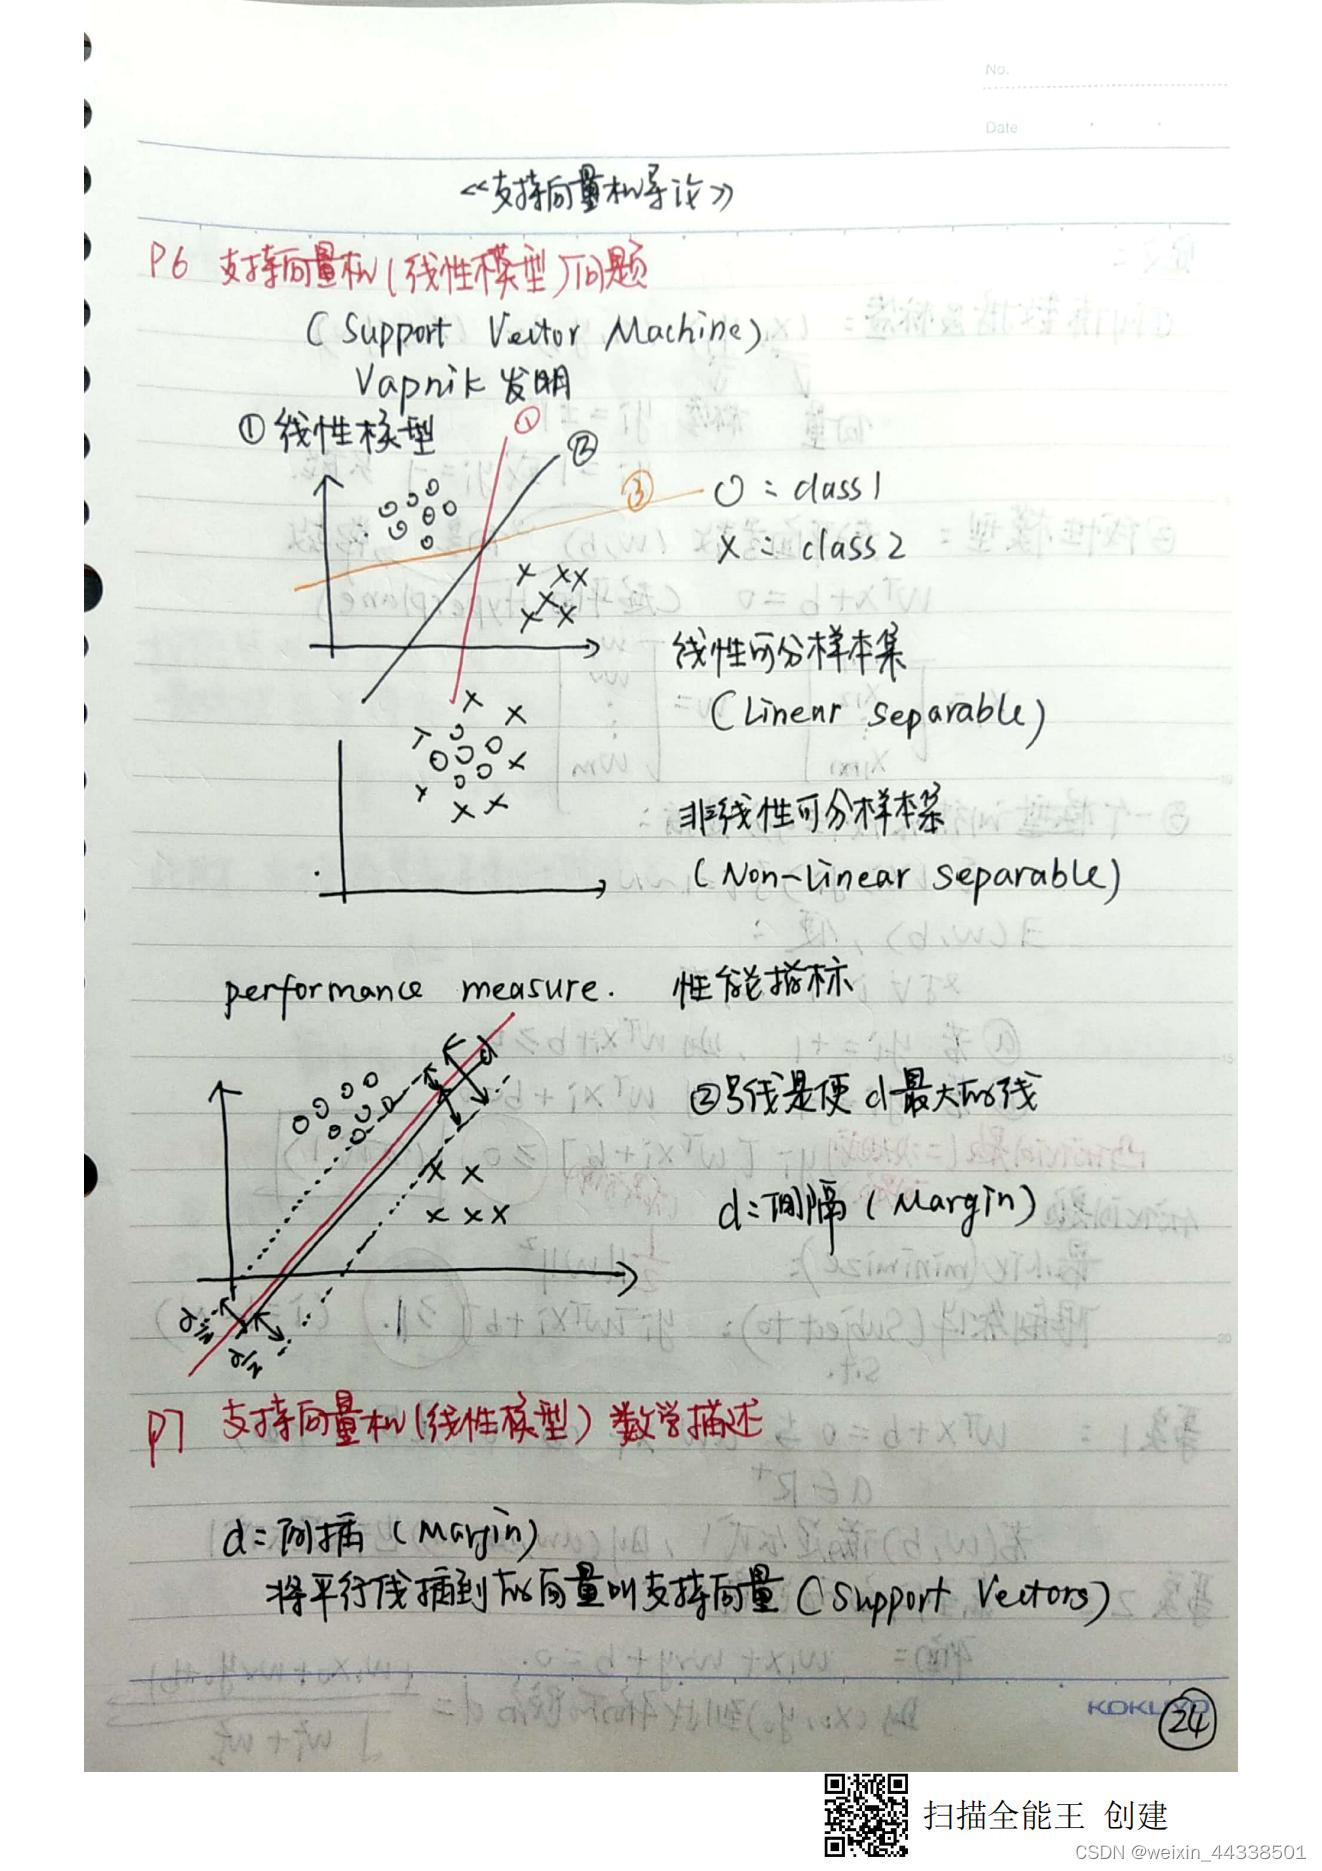 No.
Date
《支持向量机导论》
P6 支持向量机(线性模型)问题
(Support Vector Machine)
Vapnik 发明
① 线性模型
①
②
③
O：class1
X：class2
线性可分样本集
(Linear Separable)
非线性可分样本集
(Non-Linear Separable)
performance measure. 性能指标
d
②号线是使d最大的线
d：间隔(Margin)
d/2
d/2
P7 支持向量机(线性模型)数学描述
d：间插(Margin)
将平行线插到的向量叫支持向量(Support Vectors)
KOKUYO
24
扫描全能王 创建
CSDN @weixin_44338501